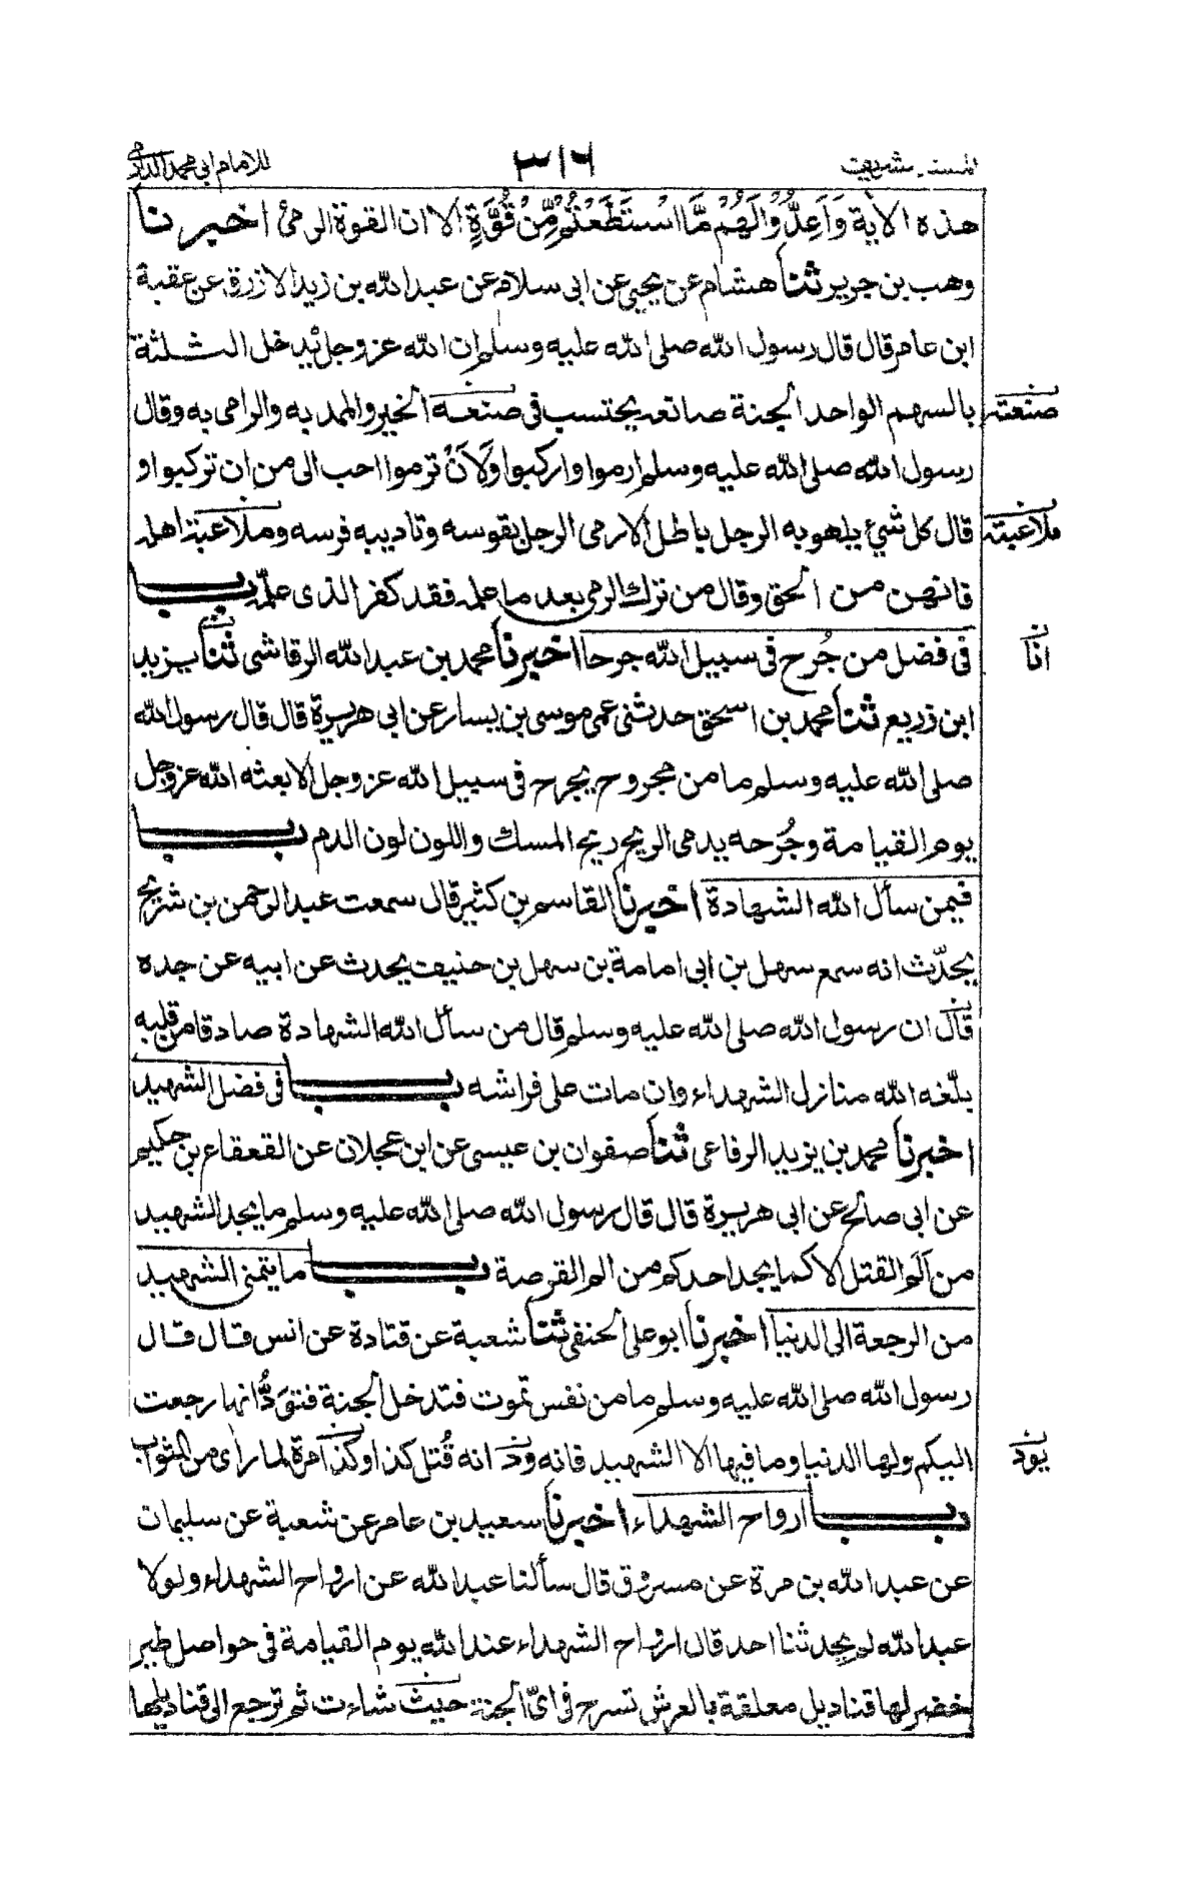 المسند شريف ٣١٦ للامام ابى محمد الدارمى
هذه الاٰية وَاَعِدُّوْالَهُمْ مَّااسْتَطَعْتُمْ مِّنْ قُوَّةٍ الا ان القوة الرمى اخبرنا
وهب بن جرير ثنا هشام عن يحيى عن ابى سلام عن عبد الله بن زيد الازرق عن عقبة
ابن عامر قال قال رسول الله صلى الله عليه وسلم ان الله عز وجل يُدخل الثلثة
بالسهم الواحد الجنة صانعه يحتسب فى صنعه الخير والممد به والرامى به وقال
صنعته
رسول الله صلى الله عليه وسلم ارموا واركبوا وَلَاَنْ ترموا احب الى من ان تركبوا و
قال كل شئ يلهو به الرجل باطل الا رمى الرجل بقوسه وتاديبه فرسه وملاعبة اهله
ملاعبته
فانهن من الحق وقال من ترك الرمى بعد ما علمه فقد كفر الذى علّمه باب
فى فضل من جُرح فى سبيل الله جرحا اخبرنا محمد بن عبد الله الرقاشى ثنا يزيد
انا
ابن زريع ثنا محمد بن اسحق حدثنى عمى موسى بن يسار عن ابى هريرة قال قال رسول الله
صلى الله عليه وسلم ما من مجروح يجرح فى سبيل الله عز وجل الا بعثه الله عز وجل
يوم القيامة وجُرحه يدمى الريح ريح المسك واللون لون الدم باب
فيمن سأل الله الشهادة اخبرنا القاسم بن كثير قال سمعت عبد الرحمن بن شريح
يحدّث انه سمع سهل بن ابى امامة بن سهل بن حنيف يحدث عن ابيه عن جده
قال ان رسول الله صلى الله عليه وسلم قال من سأل الله الشهادة صادقا من قلبه
بلّغه الله منازل الشهداء وان مات على فراشه باب فى فضل الشهيد
اخبرنا محمد بن يزيد الرفاعى ثنا صفوان بن عيسى عن ابن عجلان عن القعقاع بن حكيم
عن ابى صالح عن ابى هريرة قال قال رسول الله صلى الله عليه وسلم ما يجد الشهيد
من اَلَم القتل الا كما يجد احدكم من الم القرصة باب ما يتمنى الشهيد
من الرجعة الى الدنيا اخبرنا ابو على الحنفى ثنا شعبة عن قتادة عن انس قال قال
رسول الله صلى الله عليه وسلم ما من نفس تموت فتدخل الجنة فتوَدُّ انها رجعت
اليكم ولها الدنيا وما فيها الا الشهيد فانه ودّ انه قُتل كذا وكذا مرة لما راى من الثواب
يودّ
باب ارواح الشهداء اخبرنا سعيد بن عامر عن شعبة عن سليمان
عن عبد الله بن مرة عن مسروق قال سألنا عبد الله عن ارواح الشهداء ولولا
عبد الله لم يحدثنا احد قال ارواح الشهداء عند الله يوم القيامة فى حواصل طير
خضر لها قناديل معلقة بالعرش تسرح فى اىّ الجنة حيث شاءت ثم ترجع الى قناديلها